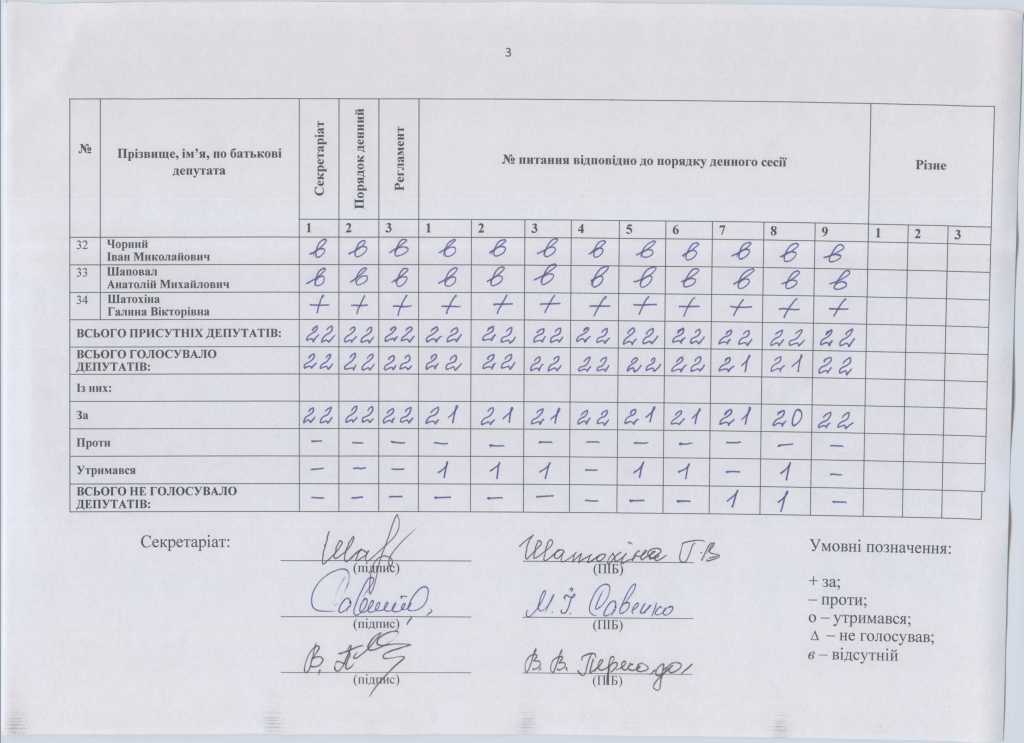 3
№ Прізвище, ім’я, по батькові депутата Секретаріат Порядок денний Регламент № питання відповідно до порядку денного сесії Різне
1 2 3 1 2 3 4 5 6 7 8 9 1 2 3
32 Чорний Іван Миколайович в в в в в в в в в в в в
33 Шаповал Анатолій Михайлович в в в в в в в в в в в в
34 Шатохіна Галина Вікторівна + + + + + + + + + + + +
ВСЬОГО ПРИСУТНІХ ДЕПУТАТІВ: 22 22 22 22 22 22 22 22 22 22 22 22
ВСЬОГО ГОЛОСУВАЛО ДЕПУТАТІВ: 22 22 22 22 22 22 22 22 22 21 21 22
Із них:
За 22 22 22 21 21 21 22 21 21 21 20 22
Проти – – – – – – – – – – – –
Утримався – – – 1 1 1 – 1 1 – 1 –
ВСЬОГО НЕ ГОЛОСУВАЛО ДЕПУТАТІВ: – – – – – – – – – 1 1 –
Секретаріат: Шатохіна Г.В
(підпис) (ПІБ)
М.І. Савенко
(підпис) (ПІБ)
В. В.
(підпис) (ПІБ)
Умовні позначення:
+ за;
– проти;
о – утримався;
Δ – не голосував;
в – відсутній